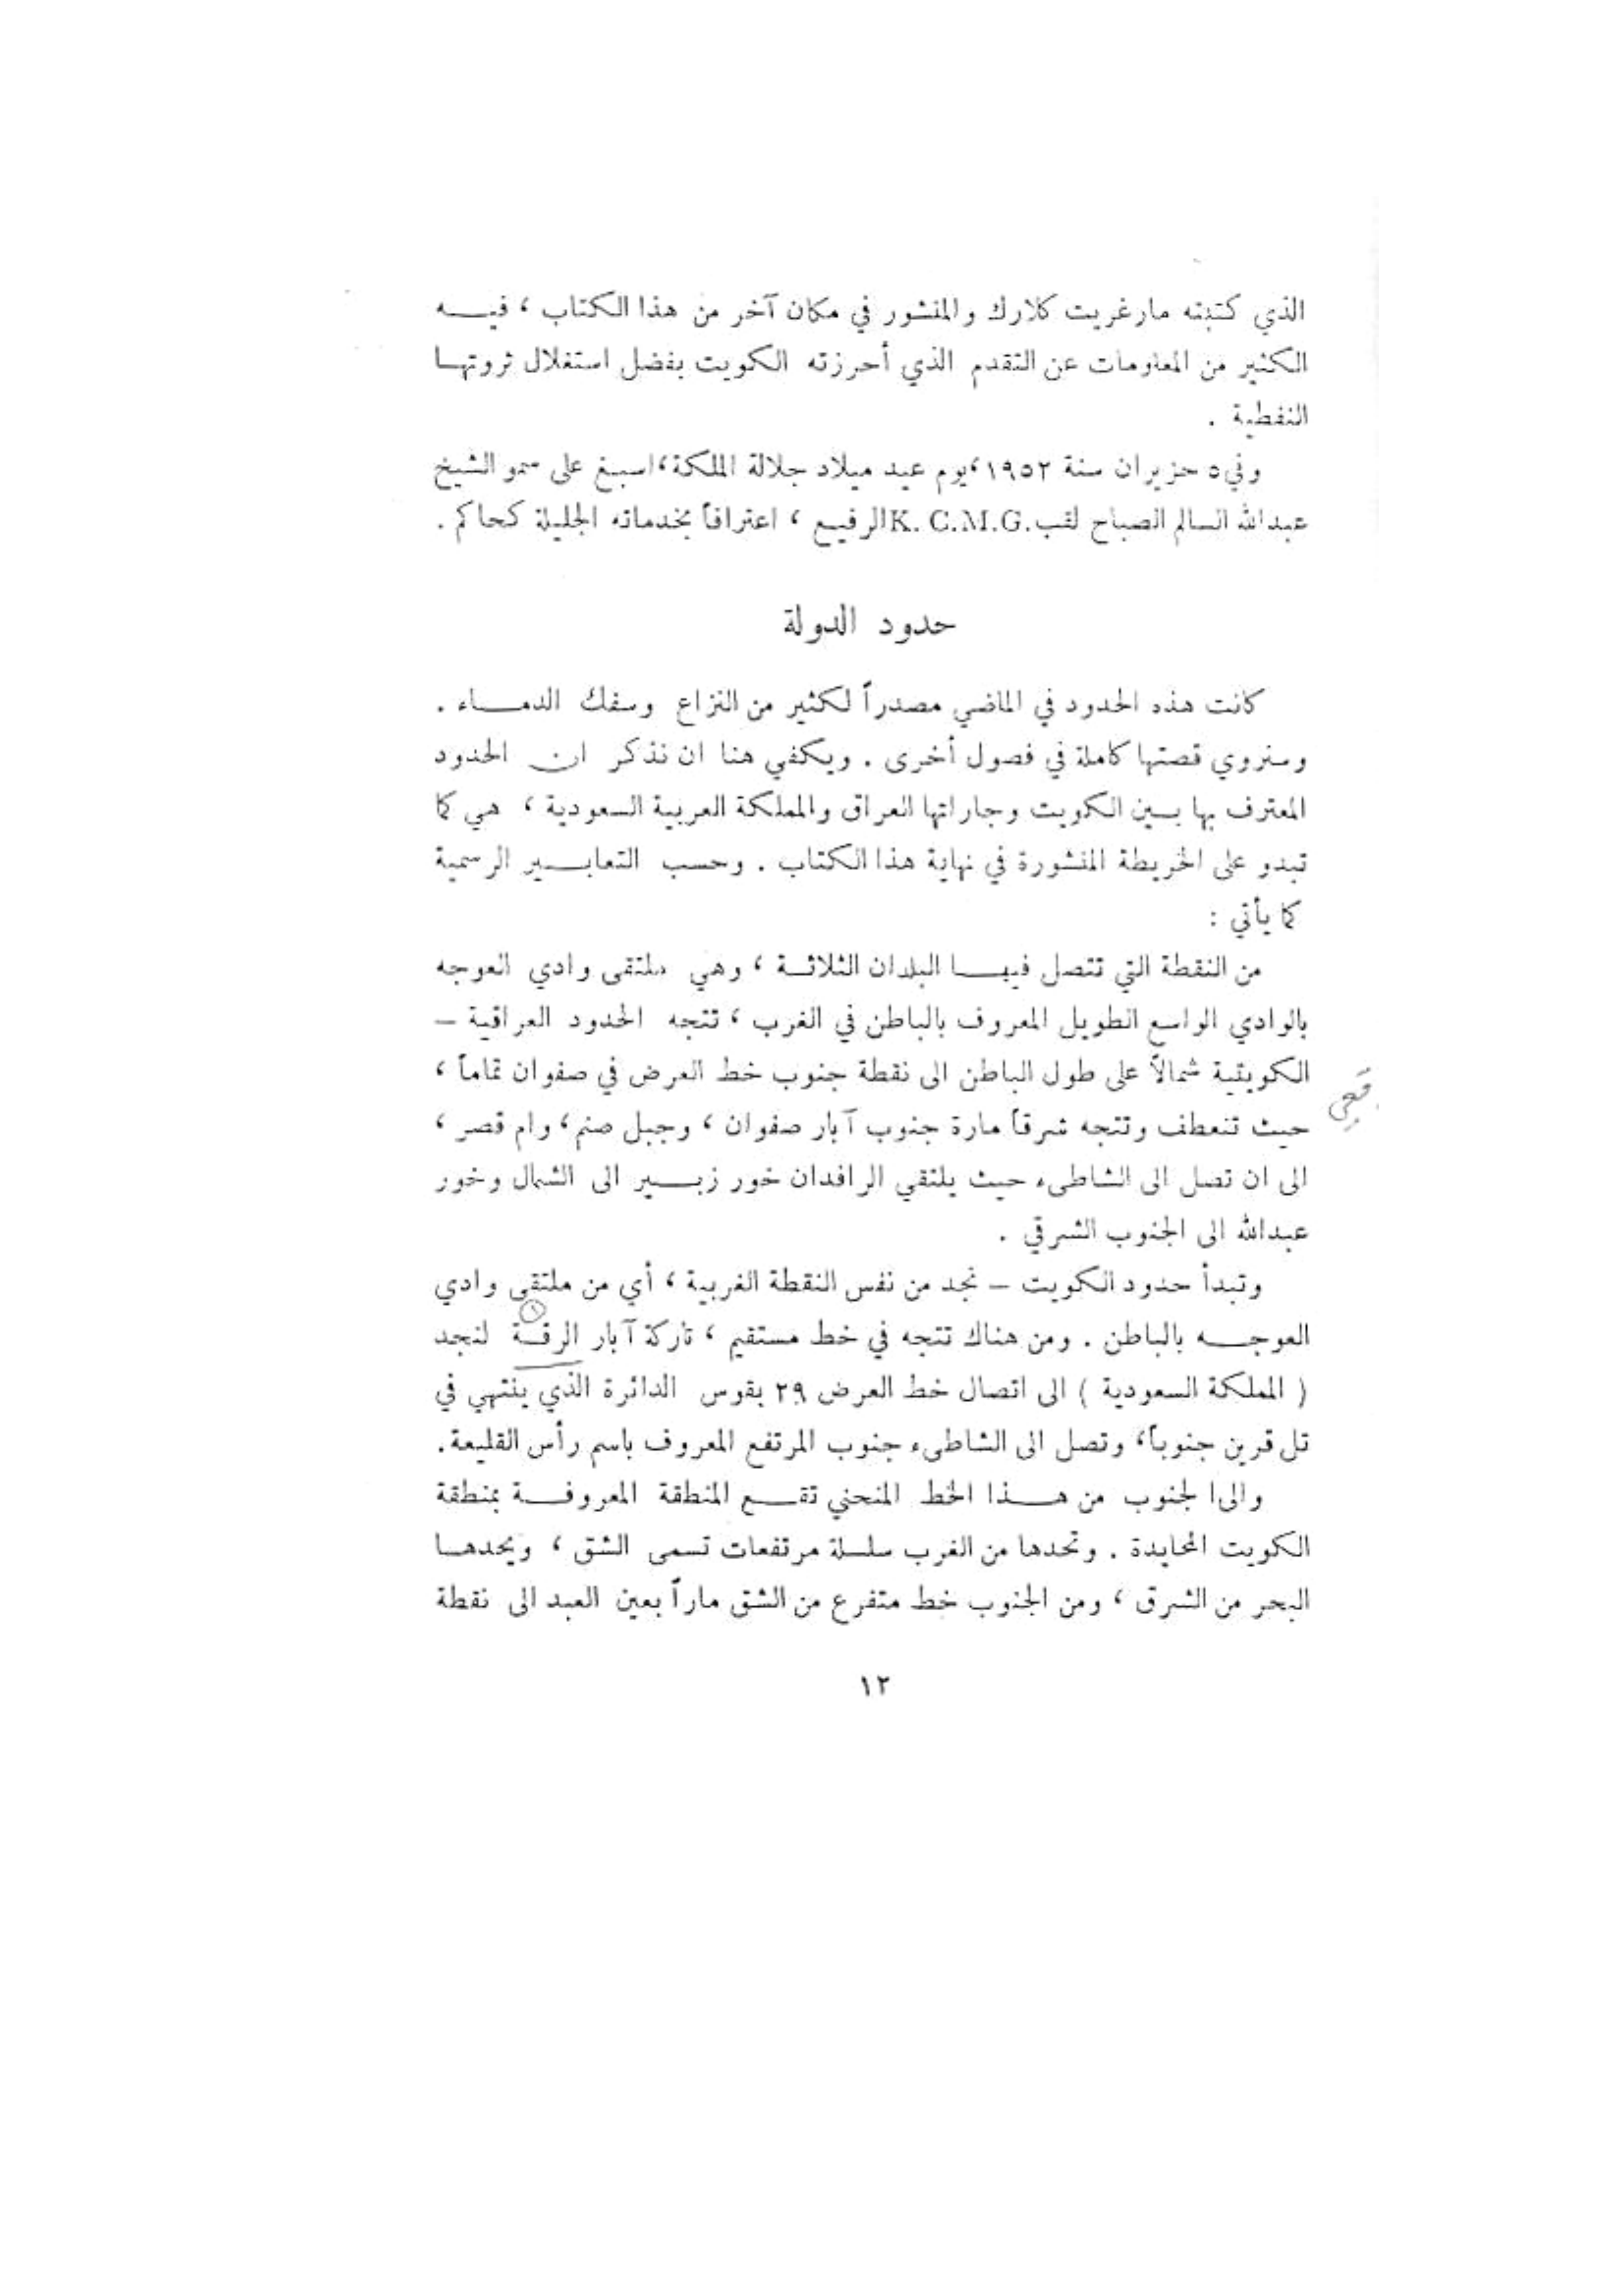 الذي كتبته مارغريت كلارك والمنشور في مكان آخر من هذا الكتاب ، فيه
الكثير من المعلومات عن التقدم الذي أحرزته الكويت بفضل استغلال ثروتها
النفطية .
وفي ٥ حزيران سنة ١٩٥٢، يوم عيد ميلاد جلالة الملكة، اسبغ على سمو الشيخ
عبدالله السالم الصباح لقب K. C.M.G. الرفيع ، اعترافاً بخدماته الجليلة كحاكم .
حدود الدولة
كانت هذه الحدود في الماضي مصدراً لكثير من النزاع وسفك الدماء .
وسنروي قصتها كاملة في فصول أخرى . ويكفي هنا ان نذكر ان الحدود
المعترف بها بين الكويت وجاراتها العراق والمملكة العربية السعودية ، هي كما
تبدو على الخريطة المنشورة في نهاية هذا الكتاب . وحسب التعابير الرسمية
كما يأتي :
من النقطة التي تتصل فيها البلدان الثلاثة ، وهي ملتقى وادي العوجه
بالوادي الواسع الطويل المعروف بالباطن في الغرب ، تتجه الحدود العراقية –
الكويتية شمالاً على طول الباطن الى نقطة جنوب خط العرض في صفوان تماماً ،
حيث تنعطف وتتجه شرقاً مارة جنوب آبار صفوان ، وجبل صنم، وام قصر ،
الى ان تصل الى الشاطىء حيث يلتقي الرافدان خور زبير الى الشمال وخور
عبدالله الى الجنوب الشرقي .
وتبدأ حدود الكويت – نجد من نفس النقطة الغربية ، أي من ملتقى وادي
العوجه بالباطن . ومن هناك تتجه في خط مستقيم ، تاركة آبار الرقة لنجد
( المملكة السعودية ) الى اتصال خط العرض ٢٩ بقوس الدائرة الذي ينتهي في
تل قرين جنوباً، وتصل الى الشاطىء جنوب المرتفع المعروف باسم رأس القليعة.
والى الجنوب من هذا الخط المنحني تقع المنطقة المعروفة بمنطقة
الكويت المحايدة . وتحدها من الغرب سلسلة مرتفعات تسمى الشق ، ويحدها
البحر من الشرق ، ومن الجنوب خط متفرع من الشق ماراً بعين العبد الى نقطة
١٢